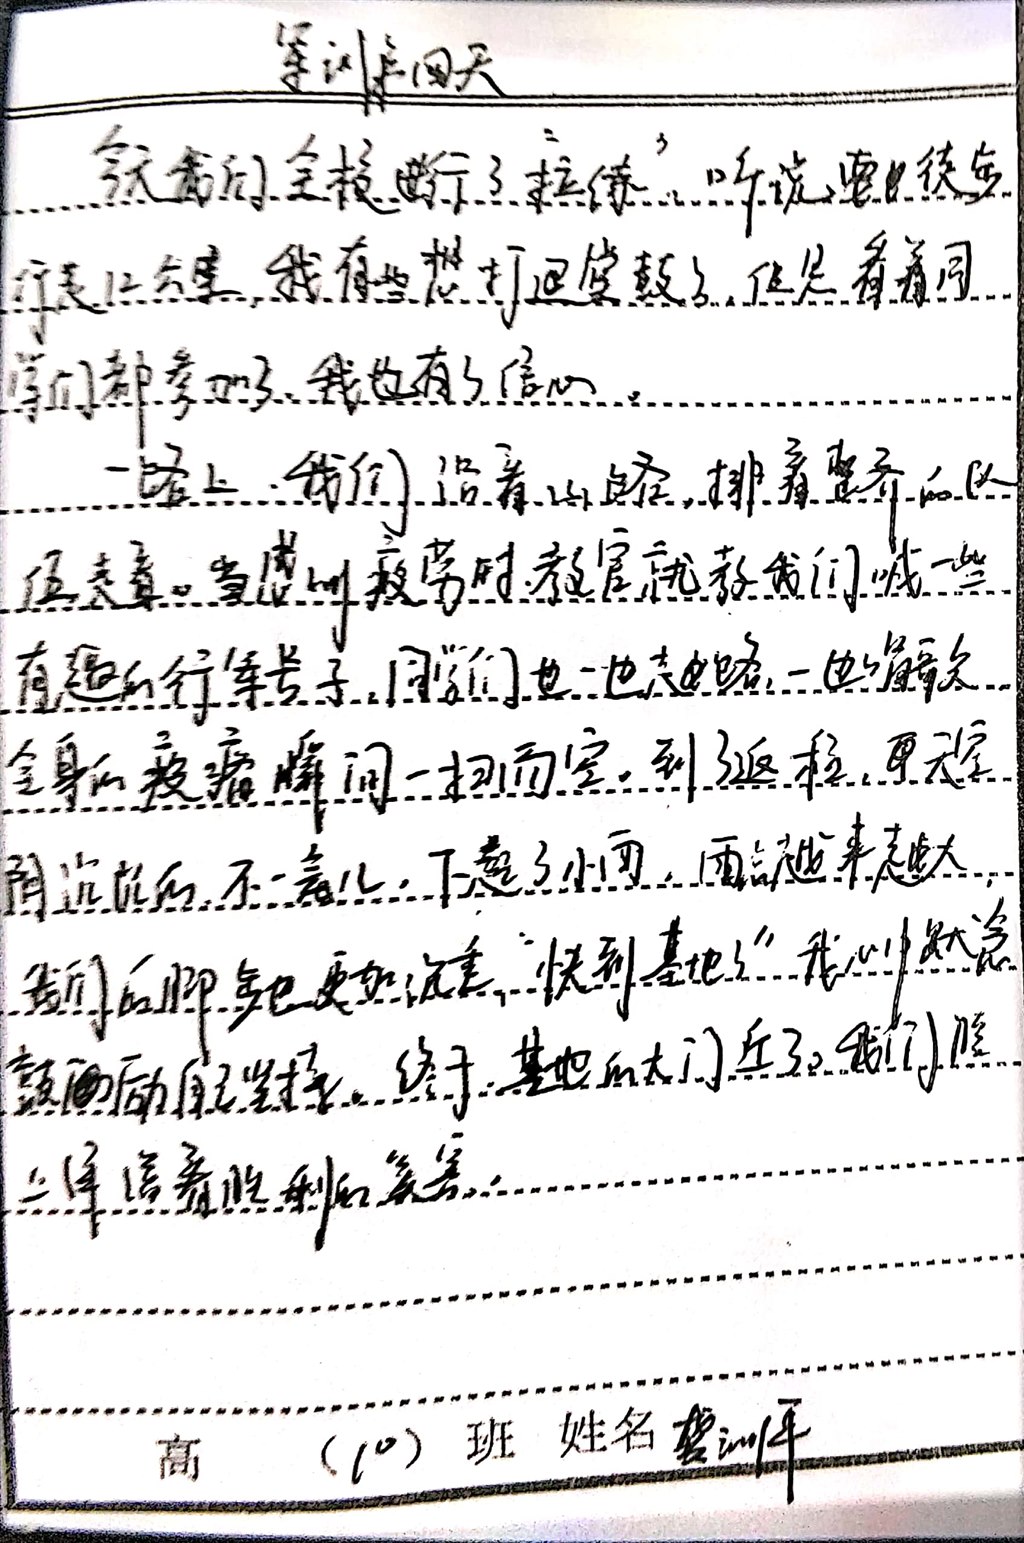 军训第四天
今天我们全校进行了"拉练"。听说要徒步
行走12公里,我有些想打退堂鼓了,但是看着同
学们都参加了,我也有了信心。
一路上,我们沿着山路,排着整齐的队
伍走着。当感到疲劳时,教官就教我们喊一些
有趣的行军号子,同学们也一边走路,一边唱歌
全身的疲痛瞬间一扫而空。到了返程,更天空
阴沉沉的,不一会儿,下起了小雨,雨越来越大,
我们的脚步也更加沉重,"快到基地了"我心中默念
鼓励自己坚持。终于,基地的大门近了。我们脸
上洋溢着胜利的笑容。
高 (10)班 姓名